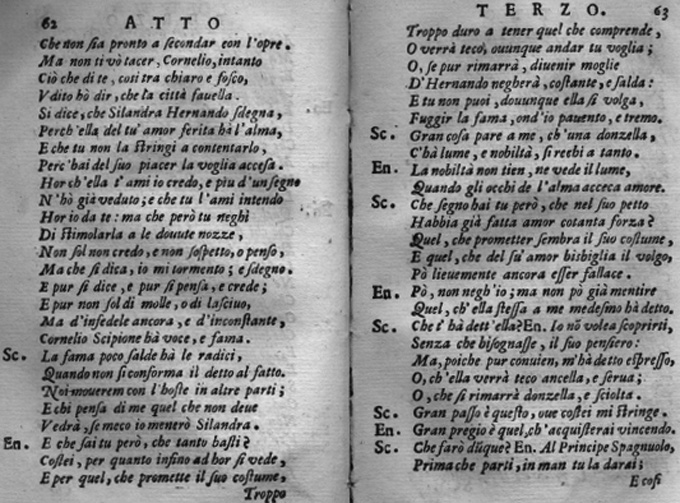 62 ATTO
Che non sia pronto a secondar con l'opre.
Ma non ti vò tacer, Cornelio, intanto
Ciò che di te, così tra chiaro e fosco,
Vdito hò dir, che la città fauella.
Si dice, che Silandra Hernando sdegna,
Perch'ella del tu' amor ferita hà l'alma,
E che tu non la stringi a contentarlo,
Perc'hai del suo piacer la voglia accesa.
Hor ch'ella t'ami io credo, e più d'un segno
N'hò già veduto; e che tu l'ami intendo
Hor io da te: ma che però tu neghi
Di stimolarla a le douute nozze,
Non sol non credo, e non sospetto, o penso,
Ma che si dica, io mi tormento; e sdegno.
E pur si dice, e pur si pensa, e crede;
E pur non sol di molle, o di lasciuo,
Ma d'infedele ancora, e d'inconstante,
Cornelio Scipione hà voce, e fama.
Sc. La fama poco salde hà le radici,
Quando non si conforma il detto al fatto.
Noi mouerem con l'hoste in altre parti;
E chi pensa di me quel che non deue
Vedrà, se meco io menerò Silandra.
En. E che fai tu però, che tanto basti?
Costei, per quanto infino ad hor si vede,
E per quel, che promette il suo costume,
Troppo
TERZO. 63
Troppo duro a tener quel che comprende,
O verrà teco, ouunque andar tu voglia;
O, se pur rimarrà, diuenir moglie
D'Hernando negherà, costante, e salda:
E tu non puoi, douunque ella si volga,
Fuggir la fama, ond'io pauento, e tremo.
Sc. Gran cosa pare a me, ch'una donzella,
C'hà lume, e nobiltà, si rechi a tanto.
En. La nobiltà non tien, ne vede il lume,
Quando gli occhi de l'alma acceca amore.
Sc. Che segno hai tu però, che nel suo petto
Habbia già fatta amor cotanta forza?
Quel, che prometter sembra il suo costume,
E quel, che del su' amor bisbiglia il volgo,
Pò lieuemente ancora esser fallace.
En. Pò, non negh'io; ma non pò già mentire
Quel, ch'ella stessa a me medesmo hà detto.
Sc. Che t'hà dett'ella? En. Io nõ volea scoprirti,
Senza che bisognasse, il suo pensiero:
Ma, poiche pur conuien, m'hà detto espresso,
O, ch'ella verrà teco ancella, e serua;
O, che si rimarrà donzella, e sciolta.
Sc. Gran passo è questo, oue costei mi stringe.
En. Gran pregio è quel, ch'acquisterai vincendo.
Sc. Che farò dũque? En. Al Principe Spagnuolo,
Prima che parti, in man tu la darai;
E così